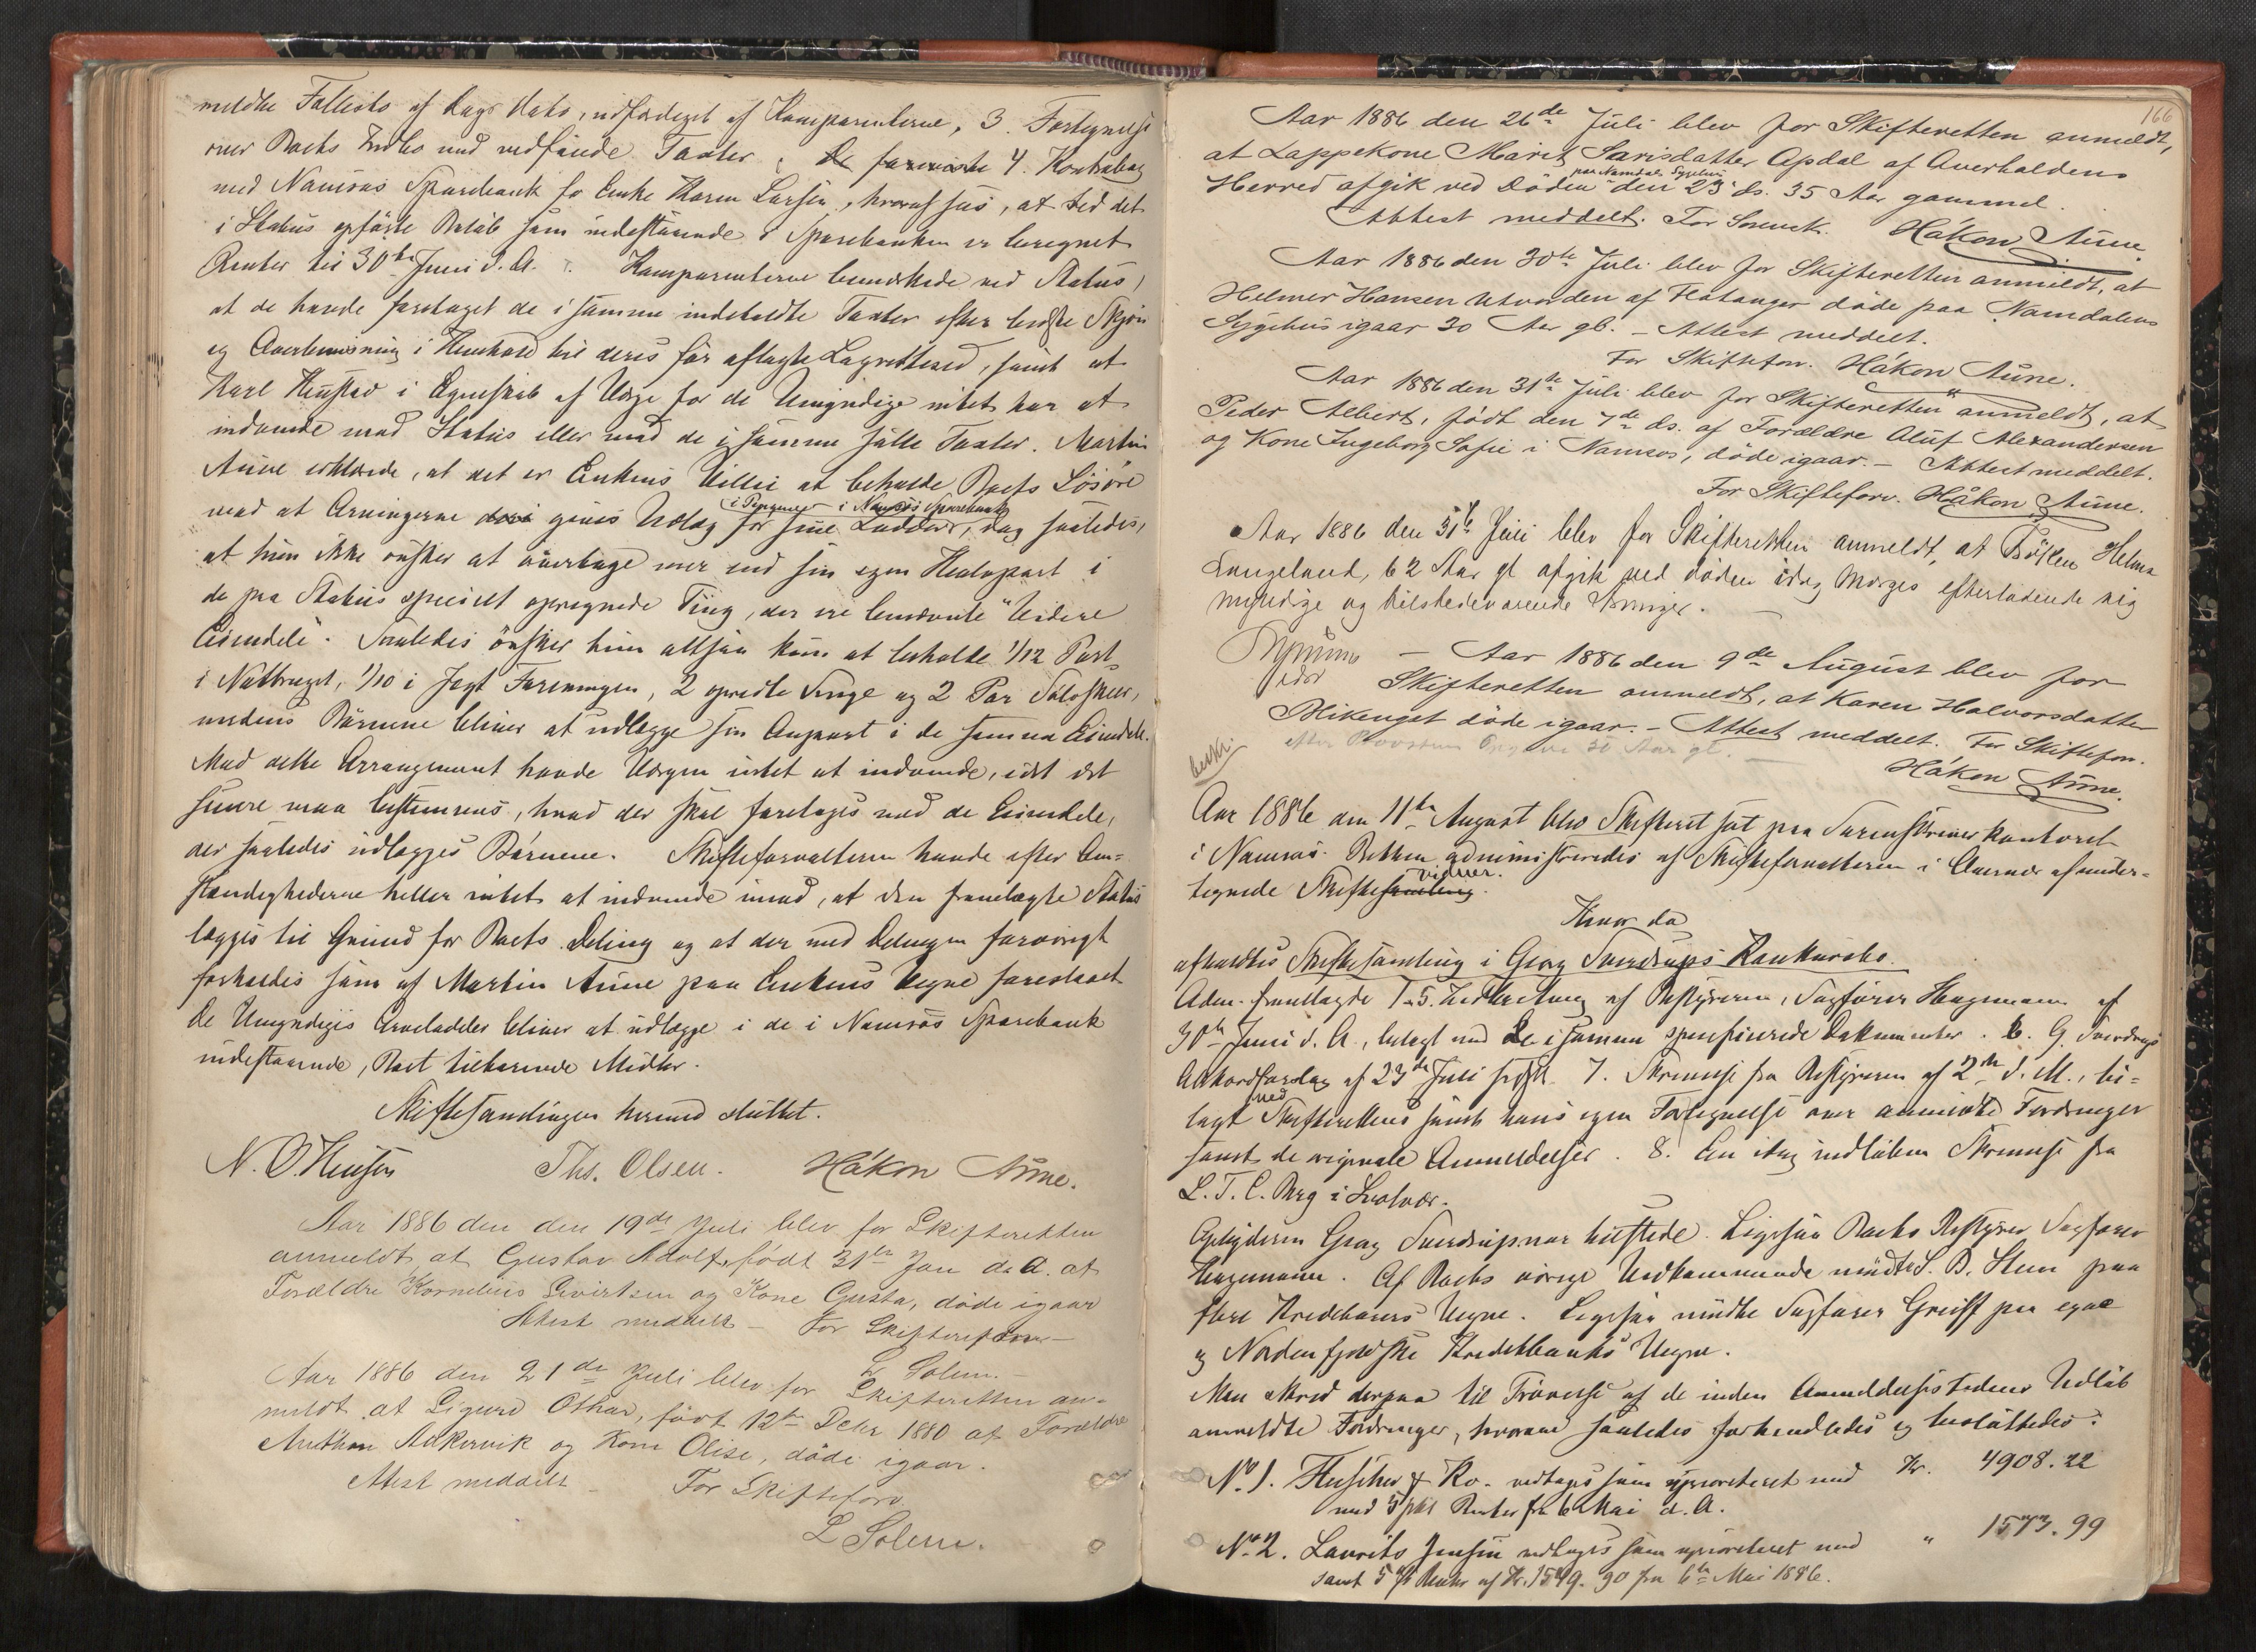 meldte Fallits af dags Dato, udfærdiget af Komparenterne, 3. Fortegnelse
over Boets Indbo med vedføiede Taxter, 4. Kontrabog
med Namsos Sparebank for Enke Karen Larsen, hvoraf saaes, at til det
i Status opførte Beløb som indestaaende i Sparebanken er beregnet
Renter til 30te Juni d. A. Komparenterne bemærkede ved Status,
at de havde foretaget de i samme indeholdte Taxter efter bedste Skjøn
og Overbevisning i Henhold til deres før aflagte Lagretteed, samt at
Karl Henstad i Egenskab af Værge for de Umyndige intet har at
indvende mod Status eller mod de i samme satte Taxter. Martin
Aune erklærede, at det er Enkens Villie at beholde Boets Løsøre
i Penger i Namsos Sparebank
mod at Arvingerne gives Udlæg for sine Lodder, dog saaledes,
at hun ikke ønsker at overtage mer end sin egen Halvpart i
de paa Status specielt opregnede Ting, der ere benævnte "Videre
Eiendele". Saaledes ønsker hun altsaa kun at beholde 1/12 Part
i Notbruget, 1/10 i Jagt Foreningen, 2 opredte Senge og 2 Par Sølvskeer,
medens Børnene bliver at udlægge sin Anpart i de samme Eiendele.
Mod dette Arrangement havde Værgen intet at indvende, idet det
senere maa bestemmes, hvad der skal foretages med de Eiendele,
der saaledes udlægges Børnene. Skifteforvalteren havde efter Om-
stændighederne heller intet at indvende imod, at den fremlagte Status
lægges til Grund for Boets Deling og at der med Delingen forøvrigt
forholdes som af Martin Aune paa Enkens Vegne foreslaaet
De Umyndiges Arvelodder bliver at udlægge i de i Namsos Sparebank
indestaaende, Boet tilhørende Midler.
Skiftesamlingen hermed sluttet.
N. O. Ths. Olsen. Håkon Aune.
Aar 1886 den den 19de Juli blev for Skifteretten
anmeldt at Gustav Adolf, født 31te Jan d. A. af
Forældre Kornelius Sivertsen og Kone Gusta, døde igaar
Attest meddelt – For Skifteforv. –
L Solem. –
Aar 1886 den 21de Juli blev for Skifteretten an-
meldt at Sigurd Othar, født 12te Decbr 1880 af Forældre
Anthon Aakervik og Kone Olise, døde igaar.
Attest meddelt – For Skifteforv
L Solem.
166
Aar 1886 den 26de Juli blev for Skifteretten anmeldt,
at Lappekone Marit Sarisdatter Apdal af Overhaldens
paa Namdals Sygehus
Herred afgik ved Døden den 23 ds. 35 Aar gammel.
Attest meddelt. For Sorensk. Håkon Aune.
Aar 1886 den 30te Juli blev for Skifteretten anmeldt, at
Helmer Hansen Utvorden af Flatanger døde paa Namdalens
Sygehus igaar 30 Aar gl. – Attest meddelt.
For Skifteforv. Håkon Aune.
Aar 1886 den 31te Juli blev for Skifteretten anmeldt, at
Peder Albert, født den 7de ds. af Forældre Oluf Alexandersen
og Kone Ingeborg Sofie i Namsos, døde igaar. – Attest meddelt.
For Skifteforv. Håkon Aune.
Aar 1886 den 31te Juli blev for Skifteretten anmeldt, at Frøken Helma
Langeland, 62 Aar gl afgik ved døden idag Morges efterladende sig
myndige og tilstedeværende Arvinger. –
– Aar 1886 den 9de August blev for
Skifteretten anmeldt, at Karen Halvorsdatter
Blikenget døde igaar. – Attest meddelt. For Skifteforv.
efter Provstens Opgave 30 Aar gl. –
Håkon Aune.
beskr.
Aar 1886 den 11te August blev Skifteret sat paa Sorenskriverkontoret
i Namsos. Retten administreredes af Skifteforvalteren i Overvær af under-
vidner.
tegnede Skiftesamling.
Hvor da
afholdtes Skiftesamling i Georg Sverdrups Konkursbo.
Adm. fremlagde 1–5. Indberetning af Bestyreren, Sagfører Hagemann af
30te Juni d. A., belagt med de i samme specificerede Dokumenter. 6. G. Sverdrups
Akkordforslag af 23de Juli sidstl. 7. Skrivelse fra Bestyreren af 2den d. M., bi-
ved
lagt Skifterettens samt hans egen Fortegnelse over anmeldte Fordringer
samt de originale Anmeldelser. 8. En idag indløben Skrivelse fra
L. T. C. Berg i Svolvær.
Opbyderen Georg Sverdrup var tilstede. Ligesaa Boets Bestyrer Sagfører
Hagemann. Af Boets øvrige Vedkommende mødte S. B. Sten paa
flere Kreditorers Vegne. Ligesaa mødte Sagfører Greiff paa egne
og Nordenfjeldske Kreditbanks Vegne.
Man skred derpaa til Prøvelse af de inden Anmeldelsestidens Udløb
anmeldte Fordringer, hvorom saaledes forhandledes og besluttedes:
No 1. Huscher & Ko. vedtages som uprioriteret med Kr. 4908.22
med 5 pct Renter fra 6 Mai d. A.
No 2. Laurits Jensen vedtages som uprioriteret med " 1573.99
samt 5 % Renter af Kr. 1549.90 fra 6te Mai 1886.